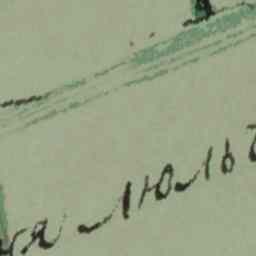 ня люль